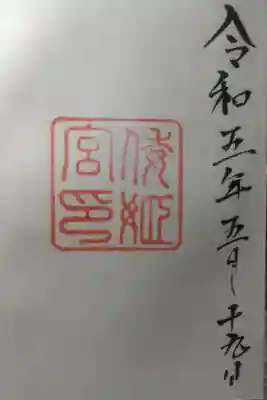 令和五年五月二十九日
倭姫
宮印